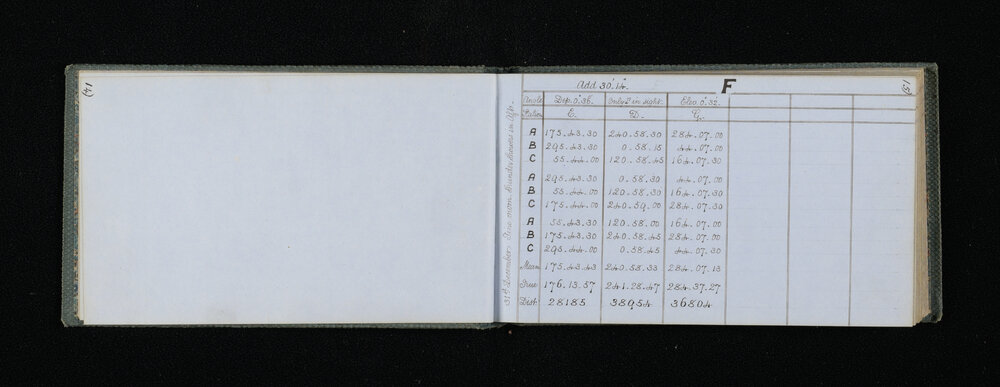 14)
15)
Add 30'. 14".
F
Angle Dep. 0°.36'. Only in sight. Elev. 0°.32'.
Station E. D. G.
A 175.43.30 240.58.30 284.07.00
B 295.43.30 0.58.15 44.07.00
C 55.44.00 120.58.45 164.07.30
A 295.43.30 0.58.30 44.07.00
B 55.44.00 120.58.30 164.07.30
C 175.44.00 240.59.00 284.07.30
A 55.43.30 120.58.00 164.07.00
B 175.43.30 240.58.45 284.07.00
C 295.44.00 0.58.45 44.07.00
Mean 175.43.43 240.58.33 284.07.13
True 176.13.57 241.28.47 284.37.27
Dist: 28185 38954 36804
31st December. Fine morn. Thunder Showers in Aftn.